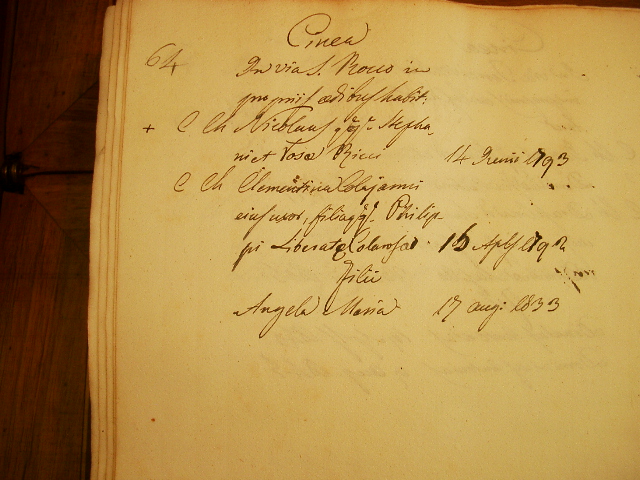 Cinea
64 In via S. Rocco in
propriis ædibus habit:
+ C Ch Nicolaus qq.m Stepha
ni et Rosæ Ricci 14 Junii 1793
C Ch Clementina Colajanni
eius uxor, filia qq. Philip
pi Liberatæ Colarossi 16 Aplis 179
Filii
Angela Maria 17 aug: 1833